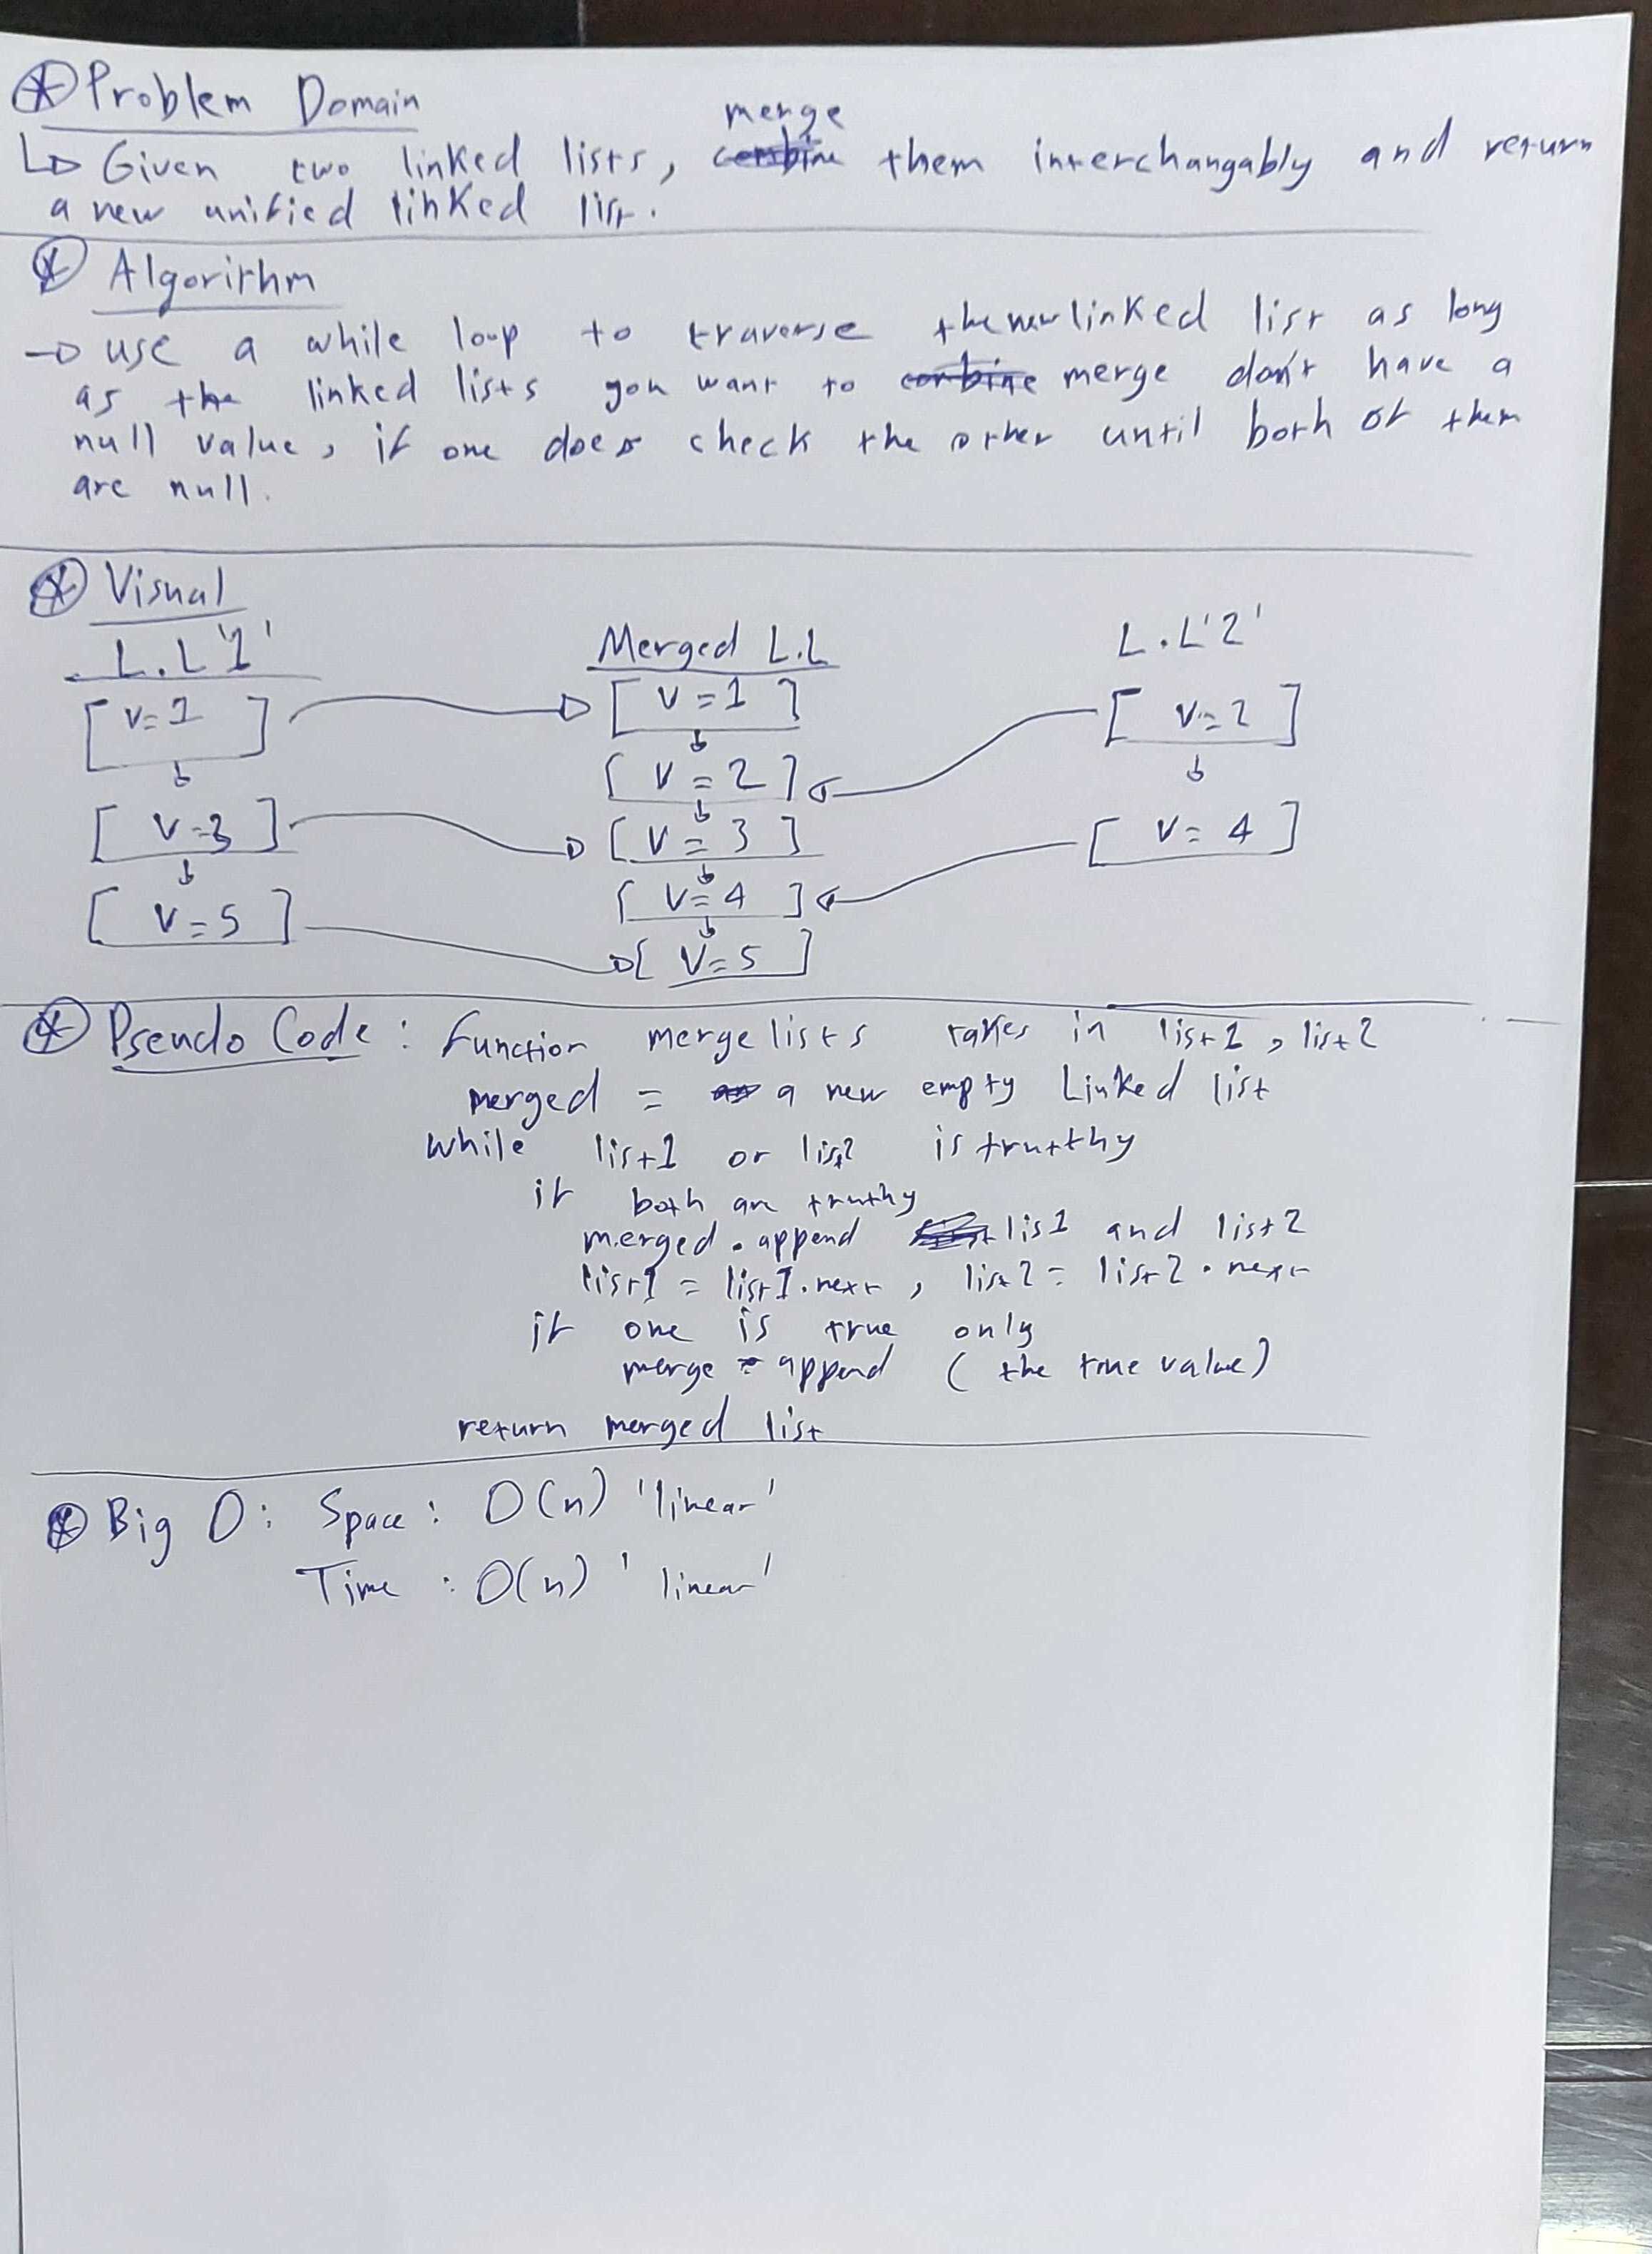 Problem Domain
Given two linked lists, merge them interchangably and return
a new unified linked list.
Algorithm
use a while loop to traverse the new linked list as long
as the linked lists you want to merge don't have a
null value, if one does check the other until both of them
are null.
Visual
L.L'1' Merged L.L L.L'2'
[ V=1 ] [ V=1 ] [ V=2 ]
[ V=2 ]
[ V=3 ] [ V=3 ] [ V=4 ]
[ V=4 ]
[ V=5 ] [ V=5 ]
Pseudo Code: Function mergelists takes in list1, list2
merged = a new empty Linked list
while list1 or list2 is truthy
if both are truthy
merged.append lis1 and list2
list1 = list1.next, list2 = list2.next
if one is true only
merge append (the true value)
return merged list
Big O: Space: O(n) 'linear'
Time: O(n) 'linear'